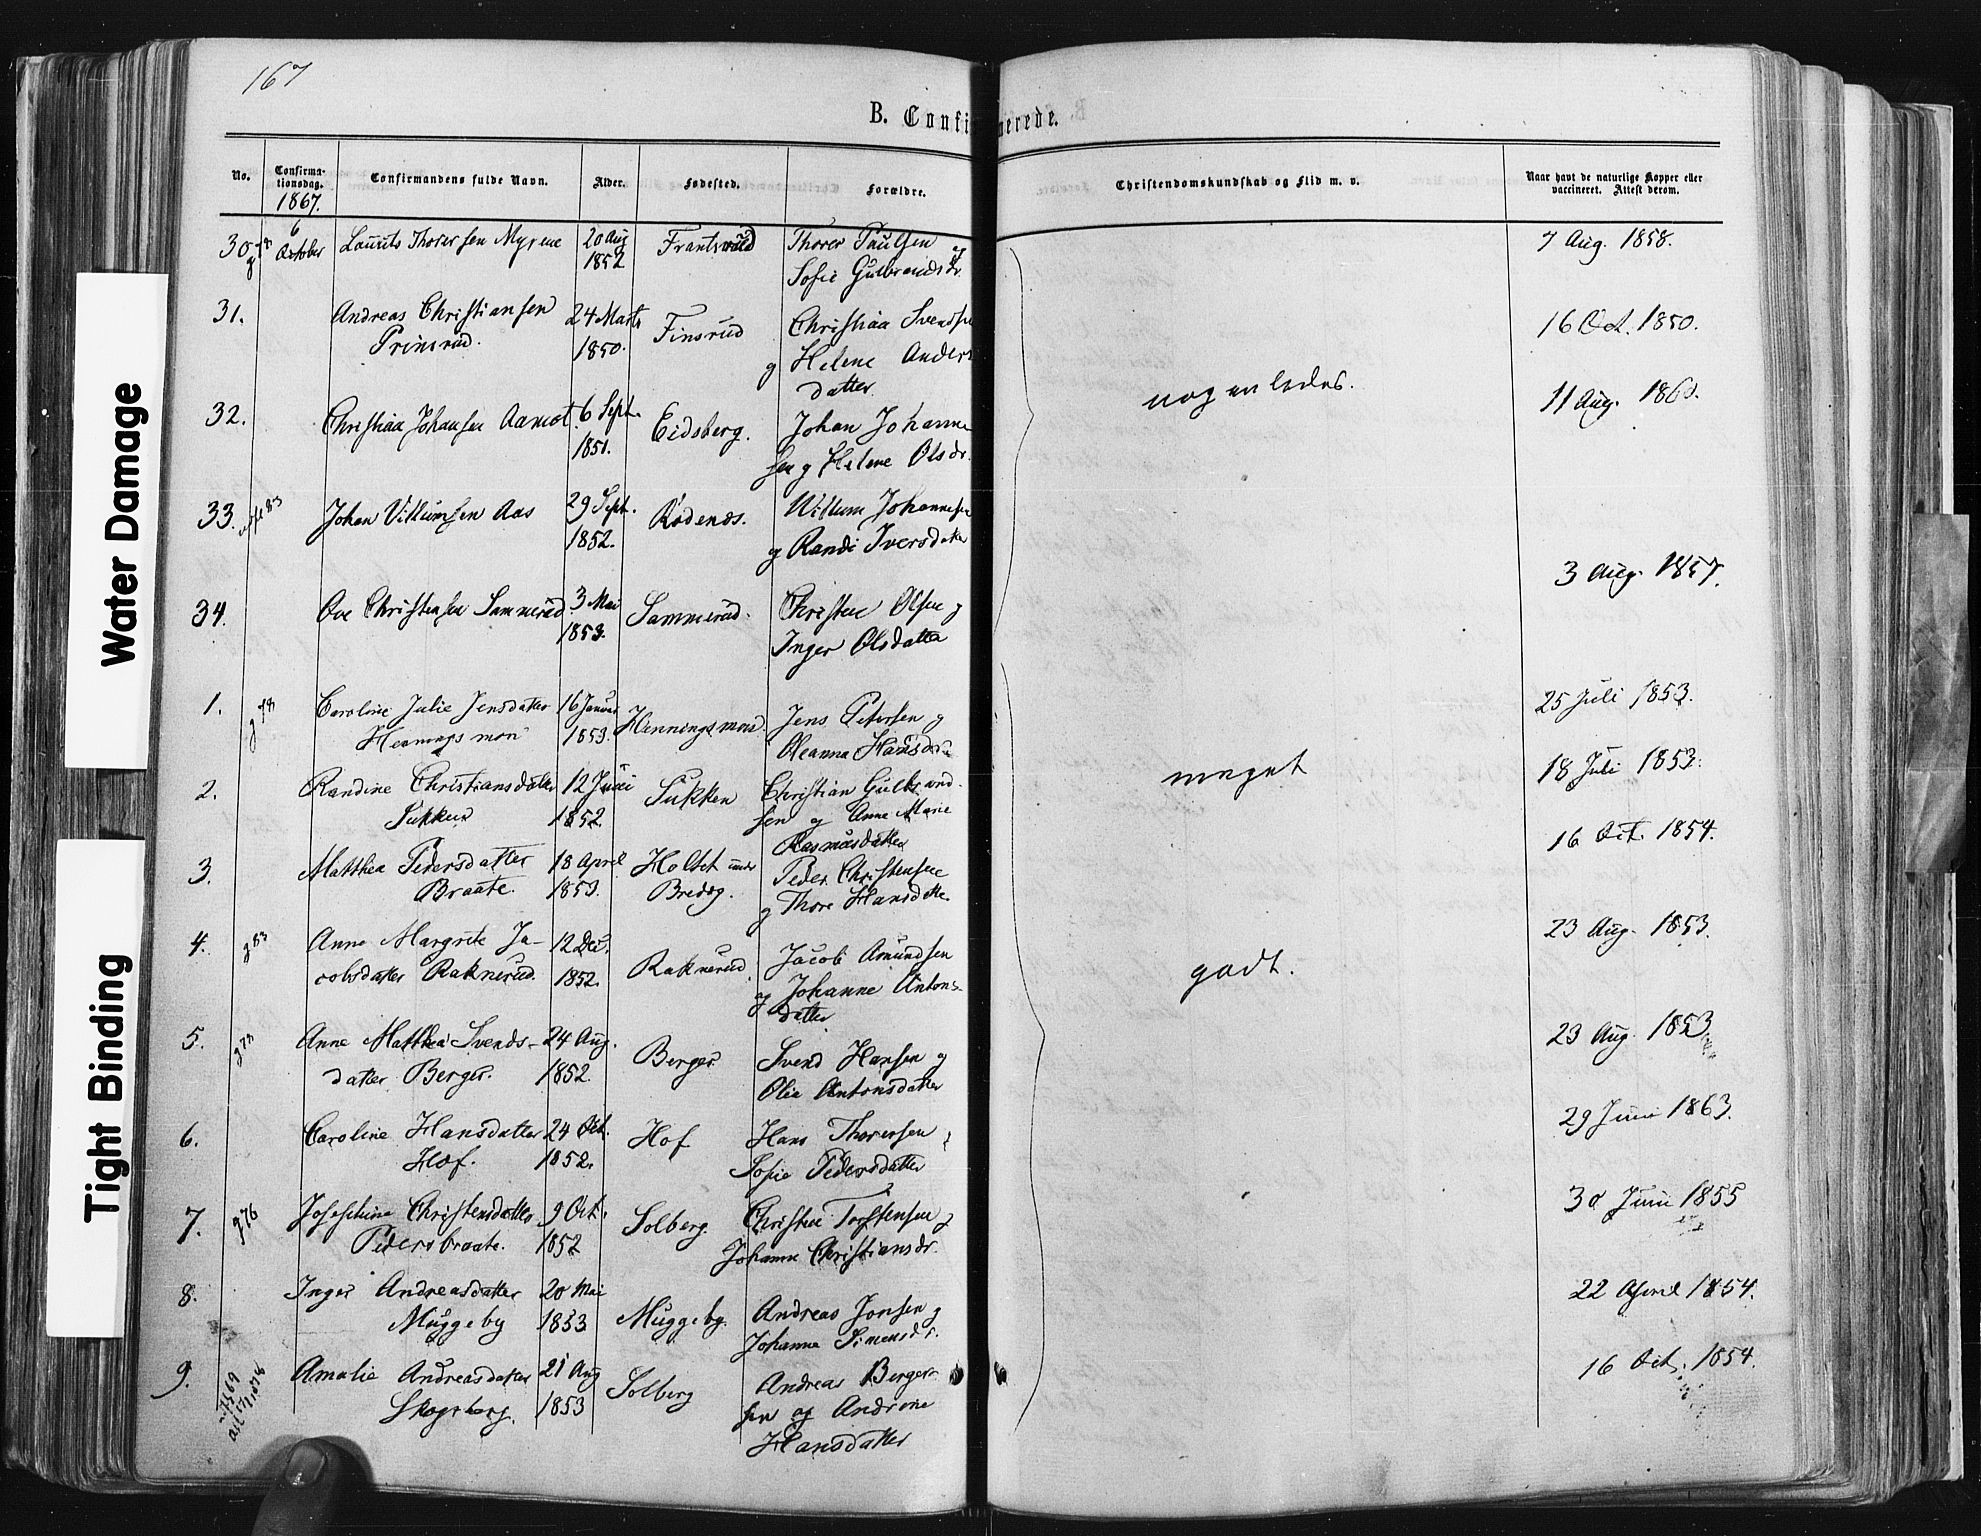 167
B. Confirmerede.
No.
Confirma-
tionsdag.
1867.
Confirmandens fulde Navn.
Alder.
Fødested.
Forældre.
Christendomskundskab og Flid m. v.
Naar havt de naturlige Kopper eller
vaccineret. Attest derom.
30 6 October Laurits Thoresen Myrene 20 Aug 1852 Frantsrud Thorer Paulsen og
Sofie Gulbrandsdr.
7 Aug. 1858.
31. Andreas Christiansen
Prinsrud. 24 Marts 1850. Finsrud Christian Svendsen
g Helene Anders
datter
16 Oct. 1850.
nogenledes.
32. Christian Johansen Aamot 6 Sept. 1851. Eidsberg. Johan Johanne
sen g Helene Olsdr.
11 Aug. 1860.
33. Johan Villumsen Aas 29 Sept. 1852. Rødenæs. Willum Johannesen
g Randi Iversdatter
3 Aug. 1857.
34. Ove Christensen Sammerud 3 Mai 1853. Sammerud. Christen Olsen g
Inger Olsdatter
1. g 78 Caroline Julie Jensdatter
Henningsmon 16 Januar 1853. Henningsmon. Jens Petersen g
Oleanna Hansdr
25 Juli 1853.
2. Randine Christiansdatter
Sukken 12 Juni 1852. Sukken Christian Gulbrand-
sen g Anne Marie
Rasmusdatter
18 Juli 1853.
meget
3. Matthea Pedersdatter
Braate. 18 April 1853. Holtet under
Bredeg. Peder Christensen
g Thore Hansdatter.
16 Oct. 1854.
4. g 83 Anne Margrete Ja-
cobsdatter Raknerud. 12 Dec. 1852. Raknerud. Jacob Amundsen
g Johanne Antons-
datter
23 Aug. 1853.
godt.
5. g 78 Anne Matthea Svends-
datter Berger. 24 Aug. 1852. Berger. Svend Hansen g
Olia Antonsdatter
23 Aug. 1853.
6. Caroline Hansdatter
Hof. 24 Oct. 1852. Hof Hans Thoresen g
Sofie Pedersdatter
29 Juni 1863.
7. g 76 Josephine Christensdatter
Pedersbraate. 9 Oct. 1852 Solberg. Christen Torstensen g
Johanne Christiansdr.
30 Juni 1855
8. Inger Andreasdatter
Muggeby 20 Mai 1853 Muggeby. Andreas Jonsen g
Johanne Simensdr.
22 April 1854.
9. Amalie Andreasdatter
Skogsberg. 21 Aug 1853 Solberg Andreas Berger-
sen og Androne
Hansdatter
16 Oct. 1854.
Water Damage
Tight Binding